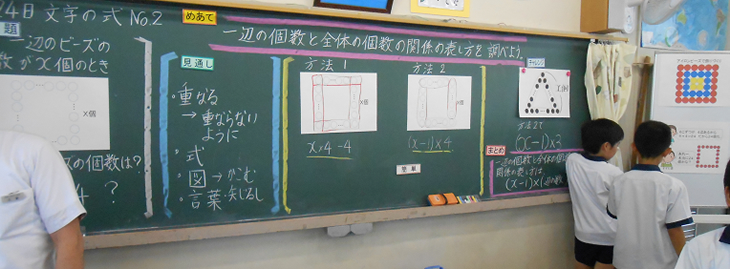 24日 文字の式 No.2
めあて
一辺の個数と全体の個数の関係の表し方を調べよう。
題
一辺のビーズの
数がx個のとき
x個
ズの個数は?
?
見通し
・重なる
→重ならない
ように
・式
・図→かこむ
・言葉・矢じるし
方法1
x個
x×4-4
方法2
x個
(x-1)×4
簡単
チャレンジ
x個
方法2で
(x-1)×3
まとめ
一辺の個数と全体の個
関係の表し方は、
(x-1)×